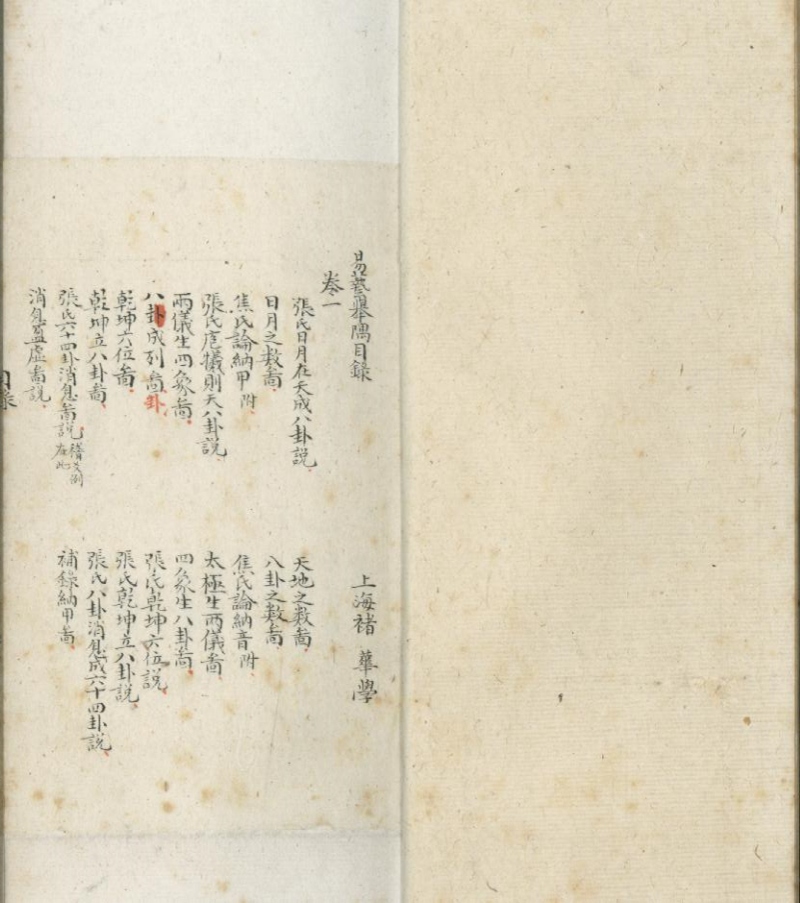 易藝舉隅目錄 上海褚 華學
卷一
張氏日月在天成八卦說 天地之数啚
日月之数啚 八卦之数啚
焦氏論納甲附 焦氏論納音附
張氏庖犧則天八卦說 太極生兩儀啚
兩儀生四象啚 四象生八卦啚
八卦成列啚卦 張氏乾坤六位說
乾坤六位啚 張氏乾坤立八卦說
乾坤立八卦啚 張氏八卦消息成六十四卦說
張氏六十四卦消息啚說 在此 補錄納甲啚
消息盈虛啚說
目錄